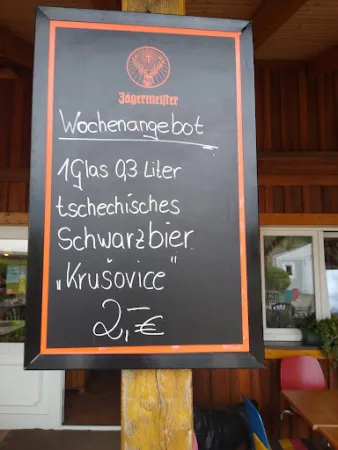 Jägermeister
Wochenangebot
1 Glas 0,3 Liter
tschechisches
Schwarzbier
„Krušovice"
2,-€